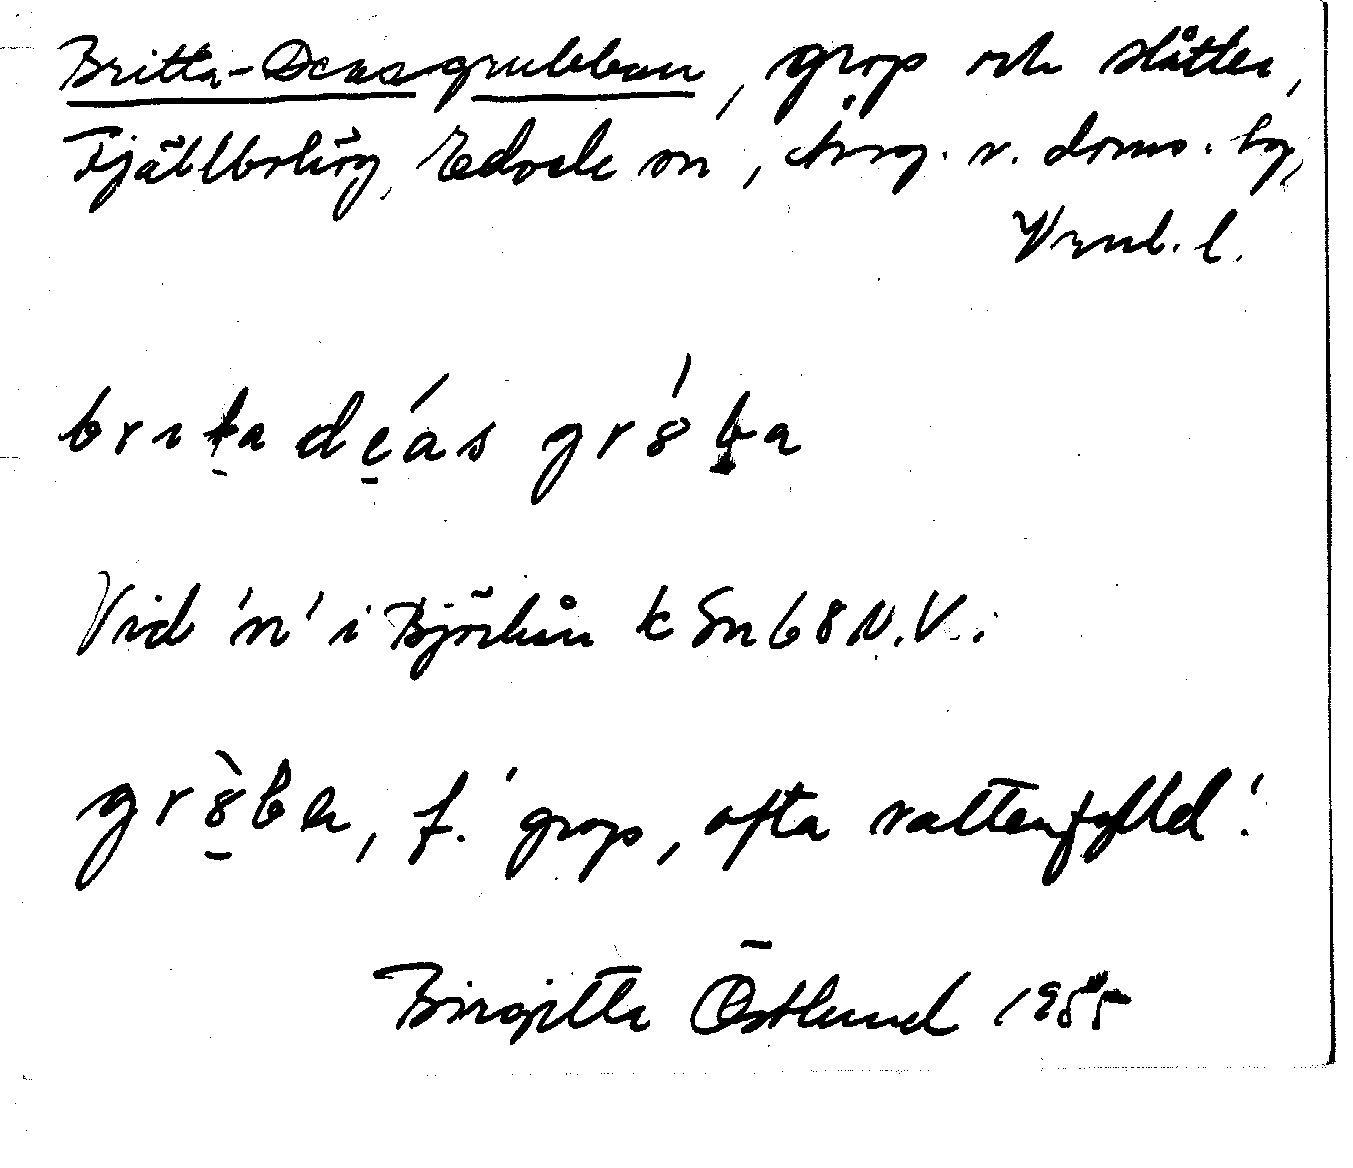 Britta-Deasgrubban, grop och slåtter,
Fjällboläg, Edsele sn, Ång. v. doms. hg,
Vrml. l.
brita deás gróba
Vid 'n' i Björkån k Sn 68 N.V.
gròba, f. 'grop, ofta vattenfylld'.
Birgitta Östlund 1955